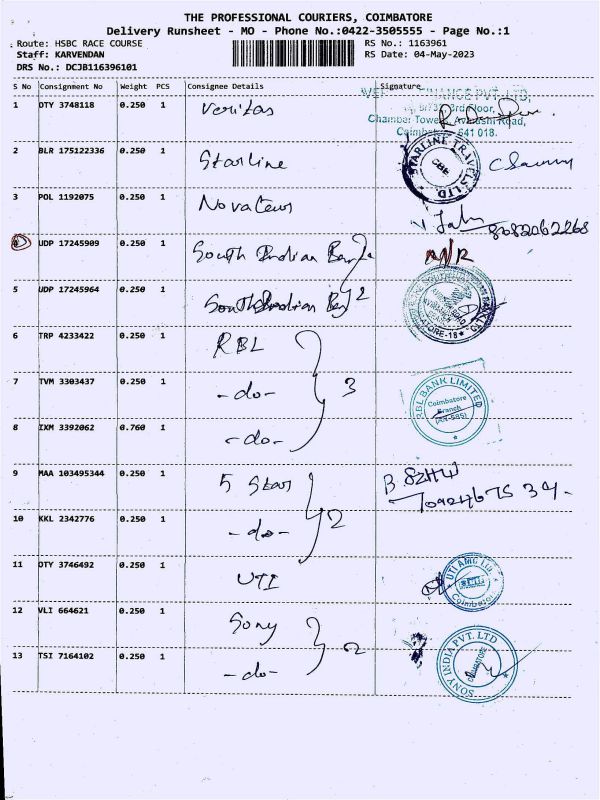 THE PROFESSIONAL COURIERS, COIMBATORE
Delivery Runsheet - MO - Phone No.:0422-3505555 - Page No.:1
Route: HSBC RACE COURSE
RS No.: 1163961
Staff: KARVENDAN
RS Date: 04-May-2023
DRS No.: DCJB116396101
S No Consignment No Weight PCS Consignee Details Signature
1 OTY 3748118 0.250 1 Veritas
FINANCE PVT. LTD,
3rd Floor,
Chamber Tower, Avinashi Road,
641 018.
2 BLR 175122336 0.250 1 Starline
STARLINE TRAVELS LTD.
CBE
3 POL 1192075 0.250 1 Novateur
8082062268
4 UDP 17245909 0.250 1 South Indian Bank
5 UDP 17245964 0.250 1 South Indian Bank 2
6 TRP 4233422 0.250 1 RBL
7 TVM 3303437 0.250 1 -do- 3
RBL BANK LIMITED
Coimbatore
Branch
8 IXM 3392062 0.760 1 -do-
9 MAA 103495344 0.250 1 5 Star
10 KKL 2342776 0.250 1 -do- 2
11 OTY 3746492 0.250 1 UTI
UTI AMC LTD.
Coimbatore
12 VLI 664621 0.250 1 Sony
13 TSI 7164102 0.250 1 -do- 2
SONY INDIA PVT. LTD
COIMBATORE